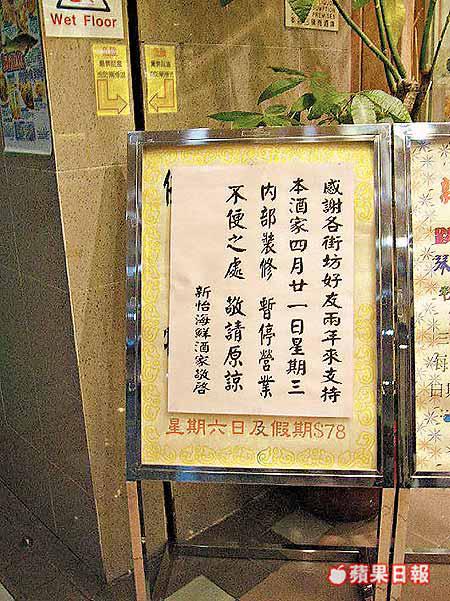 Wet Floor
感謝各街坊好友兩年來支持
本酒家四月廿一日星期三
內部裝修 暫停營業
不便之處 敬請原諒
新怡海鮮酒家敬啓
星期六日及假期$78
蘋果日報